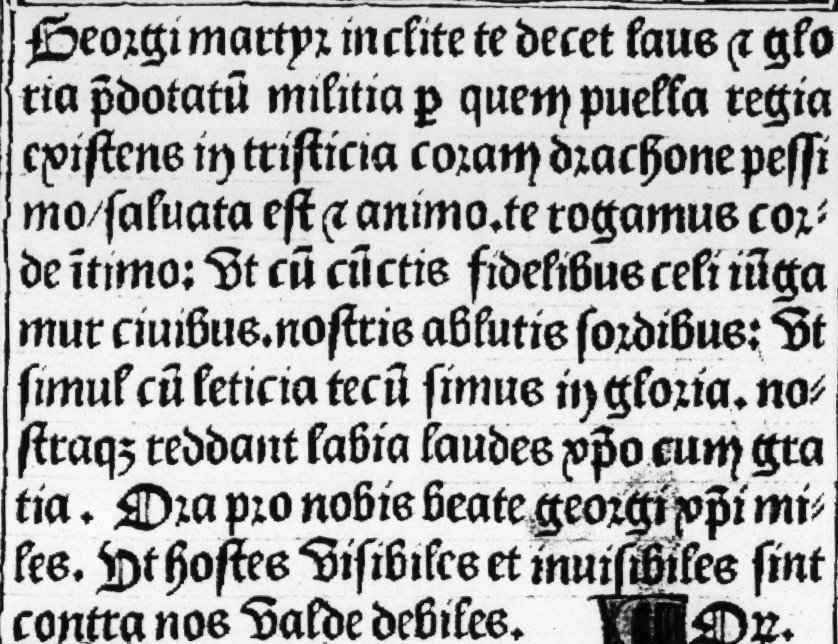 Georgi martyr inclite te decet laus ⁊ glo
ria p̄dotatū militia ꝑ quem puella regia
existens in tristicia coram drachone pessi
mo/saluata est ⁊ animo.te rogamus cor⸗
de ītimo: Vt cū cūctis fidelibus celi iūga
mur ciuibus.nostris ablutis sordibus: Vt
simul cū leticia tecū simus in gloria. no⸗
straqꝫ reddant labia laudes xp̄o cum gra
tia. Ora pro nobis beate georgi xp̄i mi⸗
les. Vt hostes visibiles et inuisibiles sint
contra nos valde debiles. Or̄.